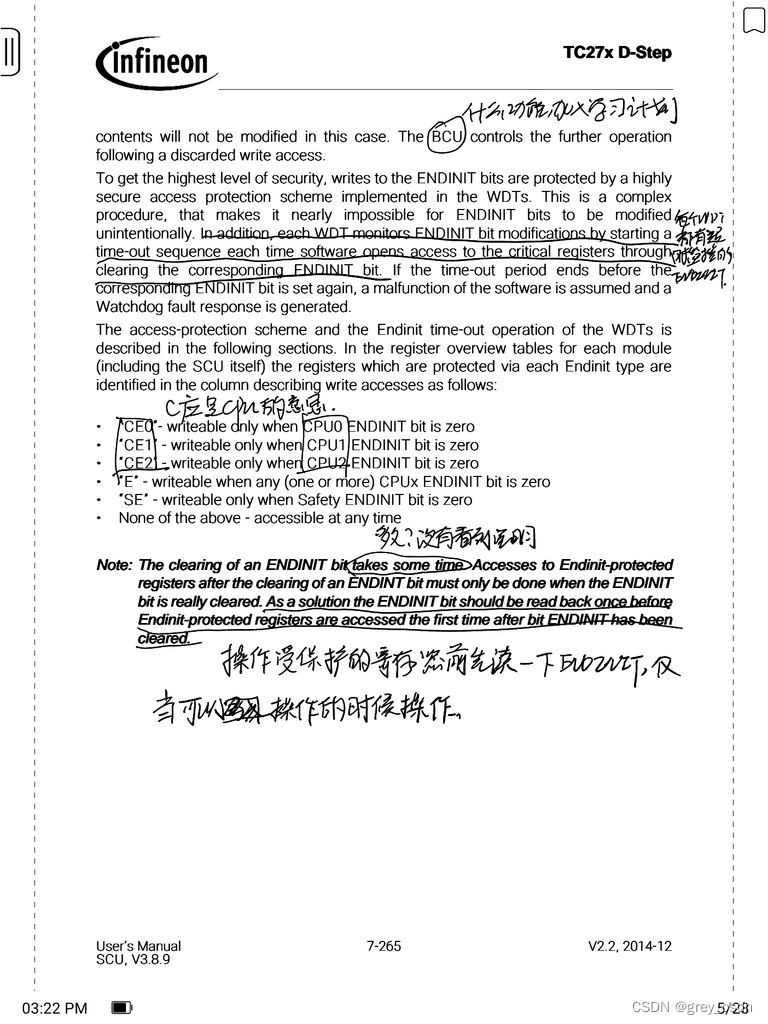 infineon
TC27x D-Step
什么功能,加入学习计划
contents will not be modified in this case. The BCU controls the further operation
following a discarded write access.
To get the highest level of security, writes to the ENDINIT bits are protected by a highly
secure access protection scheme implemented in the WDTs. This is a complex
procedure, that makes it nearly impossible for ENDINIT bits to be modified
unintentionally. In addition, each WDT monitors ENDINIT bit modifications by starting a
time-out sequence each time software opens access to the critical registers through
clearing the corresponding ENDINIT bit. If the time-out period ends before the
corresponding ENDINIT bit is set again, a malfunction of the software is assumed and a
Watchdog fault response is generated.
每个WDT
都有超
时监控的
ENDINIT.
The access-protection scheme and the Endinit time-out operation of the WDTs is
described in the following sections. In the register overview tables for each module
(including the SCU itself) the registers which are protected via each Endinit type are
identified in the column describing write accesses as follows:
C应是CPU的意思.
• "CE0" - writeable only when CPU0 ENDINIT bit is zero
• "CE1" - writeable only when CPU1 ENDINIT bit is zero
• "CE2" - writeable only when CPU2 ENDINIT bit is zero
• "E" - writeable when any (one or more) CPUx ENDINIT bit is zero
• "SE" - writeable only when Safety ENDINIT bit is zero
• None of the above - accessible at any time
多久?没有看到说明
Note: The clearing of an ENDINIT bit takes some time. Accesses to Endinit-protected
registers after the clearing of an ENDINT bit must only be done when the ENDINIT
bit is really cleared. As a solution the ENDINIT bit should be read back once before
Endinit-protected registers are accessed the first time after bit ENDINIT has been
cleared.
操作受保护的寄存器前先读一下ENDINIT,仅
当可以操作的时候操作。
User's Manual
7-265
V2.2, 2014-12
SCU, V3.8.9
03:22 PM
CSDN @grey_csdn
5/23